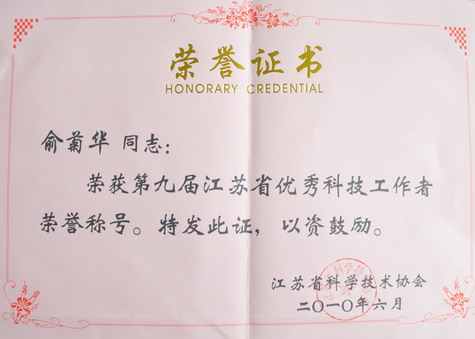 荣誉证书
HONORARY CREDENTIAL
俞菊华 同志：
荣获第九届江苏省优秀科技工作者
荣誉称号。特发此证，以资鼓励。
江苏省科学技术协会
二〇一〇年六月